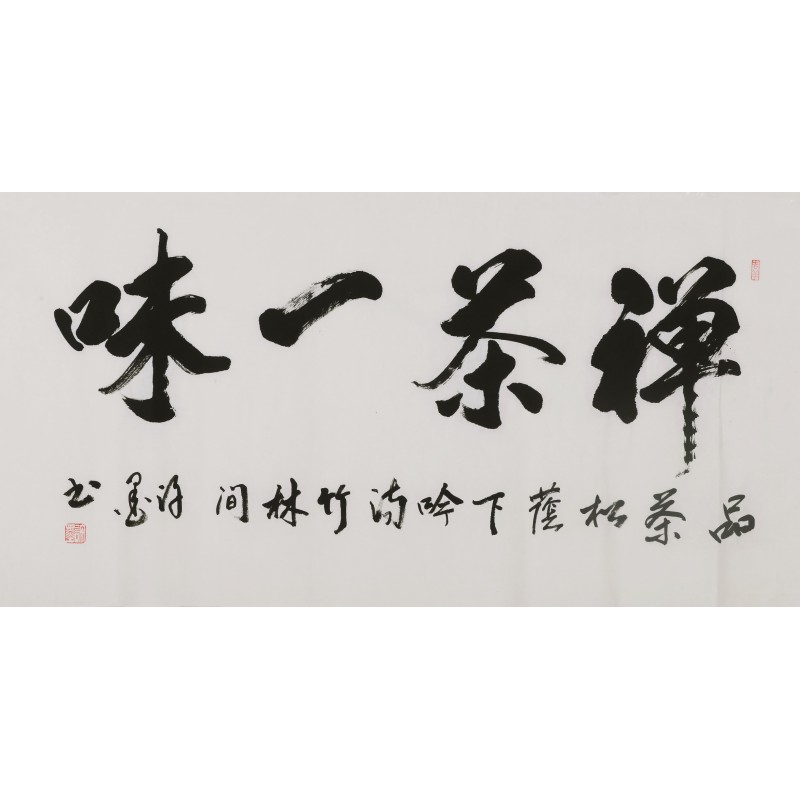 禅茶一味
品茶松蔭下吟诗竹林间 许墨书